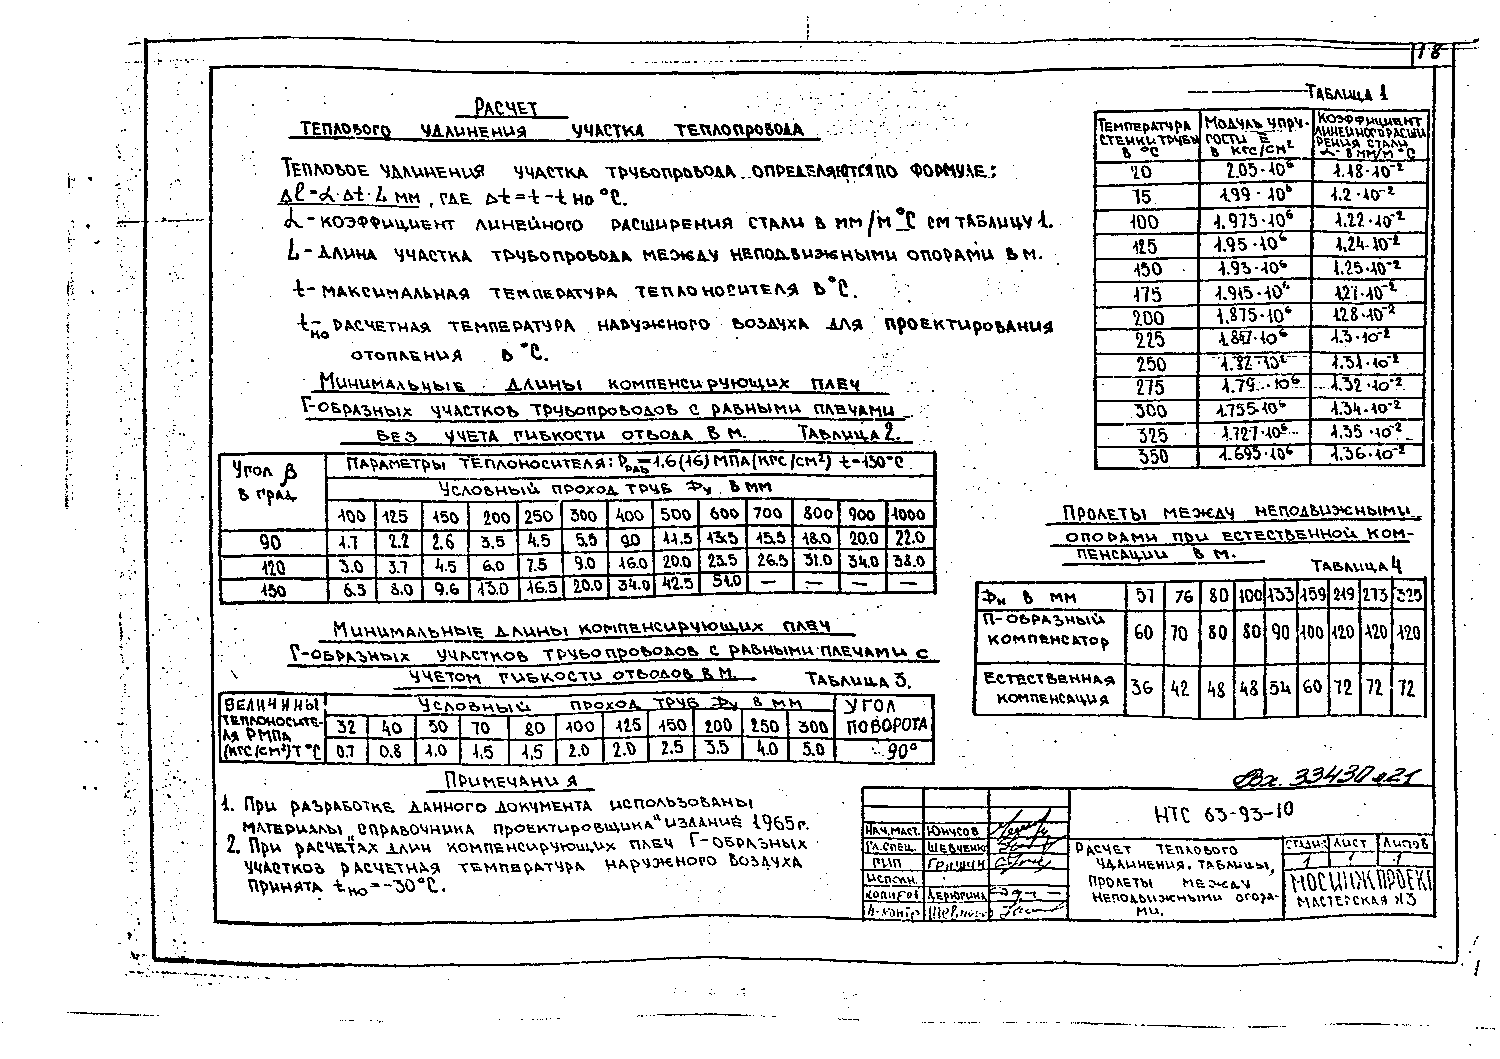 18
РАСЧЕТ
ТЕПЛОВОГО УДЛИНЕНИЯ УЧАСТКА ТЕПЛОПРОВОДА
ТЕПЛОВОЕ УДЛИНЕНИЯ УЧАСТКА ТРУБОПРОВОДА ОПРЕДЕЛЯЮТСЯ ПО ФОРМУЛЕ:
Δℓ=α Δt·L мм, ГДЕ Δt=t-t но °С.
α-КОЭФФИЦИЕНТ ЛИНЕЙНОГО РАСШИРЕНИЯ СТАЛИ В ММ/М °С СМ ТАБЛИЦУ 1.
L-ДЛИНА УЧАСТКА ТРУБОПРОВОДА МЕЖДУ НЕПОДВИЖНЫМИ ОПОРАМИ В М.
t-МАКСИМАЛЬНАЯ ТЕМПЕРАТУРА ТЕПЛОНОСИТЕЛЯ В °С.
t но - РАСЧЕТНАЯ ТЕМПЕРАТУРА НАРУЖНОГО ВОЗДУХА ДЛЯ ПРОЕКТИРОВАНИЯ
ОТОПЛЕНИЯ В °С.
МИНИМАЛЬНЫЕ ДЛИНЫ КОМПЕНСИРУЮЩИХ ПЛЕЧ
Г-ОБРАЗНЫХ УЧАСТКОВ ТРУБОПРОВОДОВ С РАВНЫМИ ПЛЕЧАМИ
БЕЗ УЧЕТА ГИБКОСТИ ОТВОДА В М. ТАБЛИЦА 2.
УГОЛ β В ГРАД. ПАРАМЕТРЫ ТЕПЛОНОСИТЕЛЯ: Рраб=1,6(16) МПА (КГС/СМ²) t=150°С
УСЛОВНЫЙ ПРОХОД ТРУБ Фу В ММ
100 125 150 200 250 300 400 500 600 700 800 900 1000
90 1.7 2.2 2.6 3.5 4.5 5.5 9.0 11.5 13.5 15.5 18.0 20.0 22.0
120 3.0 3.7 4.5 6.0 7.5 9.0 16.0 20.0 23.5 26.5 31.0 34.0 38.0
150 6.5 8.0 9.6 13.0 16.5 20.0 34.0 42.5 51.0 — — — —
МИНИМАЛЬНЫЕ ДЛИНЫ КОМПЕНСИРУЮЩИХ ПЛЕЧ
Г-ОБРАЗНЫХ УЧАСТКОВ ТРУБОПРОВОДОВ С РАВНЫМИ ПЛЕЧАМИ С
УЧЕТОМ ГИБКОСТИ ОТВОДОВ В М. ТАБЛИЦА 3.
ВЕЛИЧИНЫ УСЛОВНЫЙ ПРОХОД ТРУБ Фу В ММ УГОЛ
ТЕПЛОНОСИТЕ- 32 40 50 70 80 100 125 150 200 250 300 ПОВОРОТА
ЛЯ РМПА
(КГС/СМ²) Т °С 0.7 0.8 1.0 1,5 1,5 2.0 2.0 2.5 3.5 4.0 5.0 90°
ПРИМЕЧАНИЯ
1. ПРИ РАЗРАБОТКЕ ДАННОГО ДОКУМЕНТА ИСПОЛЬЗОВАНЫ
МАТЕРИАЛЫ „СПРАВОЧНИКА ПРОЕКТИРОВЩИКА" ИЗДАНИЕ 1965г.
2. ПРИ РАСЧЕТАХ ДЛИН КОМПЕНСИРУЮЩИХ ПЛЕЧ Г-ОБРАЗНЫХ
УЧАСТКОВ РАСЧЕТНАЯ ТЕМПЕРАТУРА НАРУЖНОГО ВОЗДУХА
ПРИНЯТА t но=-30°С.
ТАБЛИЦА 1
ТЕМПЕРАТУРА СТЕНКИ ТРУБЫ В °С МОДУЛЬ УПРУГОСТИ Е В КГС/СМ² КОЭФФИЦИЕНТ ЛИНЕЙНОГО РАСШИРЕНИЯ СТАЛИ α В ММ/М °С
20 2.05·10⁶ 1.18·10⁻²
75 1.99·10⁶ 1.2·10⁻²
100 1.975·10⁶ 1.22·10⁻²
125 1.95·10⁶ 1.24·10⁻²
150 1.93·10⁶ 1.25·10⁻²
175 1.915·10⁶ 1.27·10⁻²
200 1.875·10⁶ 1.28·10⁻²
225 1.847·10⁶ 1.3·10⁻²
250 1.82·10⁶ 1.31·10⁻²
275 1.79·10⁶ 1.32·10⁻²
300 1.755·10⁶ 1.34·10⁻²
325 1.727·10⁶ 1.35·10⁻²
350 1.695·10⁶ 1.36·10⁻²
ПРОЛЕТЫ МЕЖДУ НЕПОДВИЖНЫМИ
ОПОРАМИ ПРИ ЕСТЕСТВЕННОЙ КОМ-
ПЕНСАЦИИ В М.
ТАБЛИЦА 4
Фн В ММ 57 76 80 100 133 159 219 273 325
П-ОБРАЗНЫЙ КОМПЕНСАТОР 60 70 80 80 90 100 120 120 120
ЕСТЕСТВЕННАЯ КОМПЕНСАЦИЯ 36 42 48 48 54 60 72 72 72
Вх. 33430 л21
НТС 63-93-10
НАЧ.МАСТ. ЮНУСОВ
ГЛ.СПЕЦ. ШЕВЧЕНКО
ГИП ГРИШИН
ИСПОЛН.
КОПИРОВ ДЕРЮГИНА
Н-контр
РАСЧЕТ ТЕПЛОВОГО
УДЛИНЕНИЯ. ТАБЛИЦЫ,
ПРОЛЕТЫ МЕЖДУ
НЕПОДВИЖНЫМИ ОПОРА-
МИ.
СТАДИЯ ЛИСТ ЛИСТОВ
1 1 1
МОСИНЖПРОЕКТ
МАСТЕРСКАЯ N3